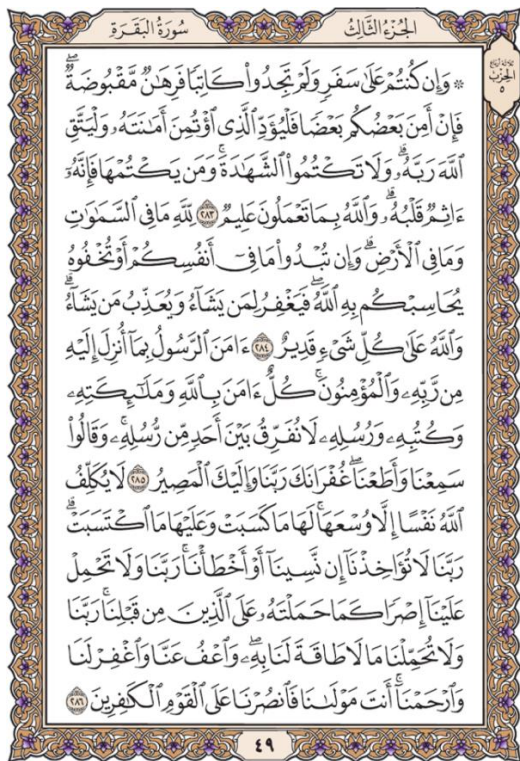 الجُزْءُ الثَّالِثُ
سُورَةُ البَقَرَةِ
ثلاثة أرباع
الحزب
٥
۞ وَإِن كُنتُمْ عَلَىٰ سَفَرٍ وَلَمْ تَجِدُوا۟ كَاتِبًا فَرِهَٰنٌ مَّقْبُوضَةٌ ۖ
فَإِنْ أَمِنَ بَعْضُكُم بَعْضًا فَلْيُؤَدِّ ٱلَّذِى ٱؤْتُمِنَ أَمَٰنَتَهُۥ وَلْيَتَّقِ
ٱللَّهَ رَبَّهُۥ ۗ وَلَا تَكْتُمُوا۟ ٱلشَّهَٰدَةَ ۚ وَمَن يَكْتُمْهَا فَإِنَّهُۥٓ
ءَاثِمٌ قَلْبُهُۥ ۗ وَٱللَّهُ بِمَا تَعْمَلُونَ عَلِيمٌ ٢٨٣ لِّلَّهِ مَا فِى ٱلسَّمَٰوَٰتِ
وَمَا فِى ٱلْأَرْضِ ۗ وَإِن تُبْدُوا۟ مَا فِىٓ أَنفُسِكُمْ أَوْ تُخْفُوهُ
يُحَاسِبْكُم بِهِ ٱللَّهُ ۖ فَيَغْفِرُ لِمَن يَشَآءُ وَيُعَذِّبُ مَن يَشَآءُ ۗ
وَٱللَّهُ عَلَىٰ كُلِّ شَىْءٍ قَدِيرٌ ٢٨٤ ءَامَنَ ٱلرَّسُولُ بِمَآ أُنزِلَ إِلَيْهِ
مِن رَّبِّهِۦ وَٱلْمُؤْمِنُونَ ۚ كُلٌّ ءَامَنَ بِٱللَّهِ وَمَلَٰٓئِكَتِهِۦ
وَكُتُبِهِۦ وَرُسُلِهِۦ لَا نُفَرِّقُ بَيْنَ أَحَدٍ مِّن رُّسُلِهِۦ ۚ وَقَالُوا۟
سَمِعْنَا وَأَطَعْنَا ۖ غُفْرَانَكَ رَبَّنَا وَإِلَيْكَ ٱلْمَصِيرُ ٢٨٥ لَا يُكَلِّفُ
ٱللَّهُ نَفْسًا إِلَّا وُسْعَهَا ۚ لَهَا مَا كَسَبَتْ وَعَلَيْهَا مَا ٱكْتَسَبَتْ ۗ
رَبَّنَا لَا تُؤَاخِذْنَآ إِن نَّسِينَآ أَوْ أَخْطَأْنَا ۚ رَبَّنَا وَلَا تَحْمِلْ
عَلَيْنَآ إِصْرًا كَمَا حَمَلْتَهُۥ عَلَى ٱلَّذِينَ مِن قَبْلِنَا ۚ رَبَّنَا
وَلَا تُحَمِّلْنَا مَا لَا طَاقَةَ لَنَا بِهِۦ ۖ وَٱعْفُ عَنَّا وَٱغْفِرْ لَنَا
وَٱرْحَمْنَآ ۚ أَنتَ مَوْلَىٰنَا فَٱنصُرْنَا عَلَى ٱلْقَوْمِ ٱلْكَٰفِرِينَ ٢٨٦
٤٩